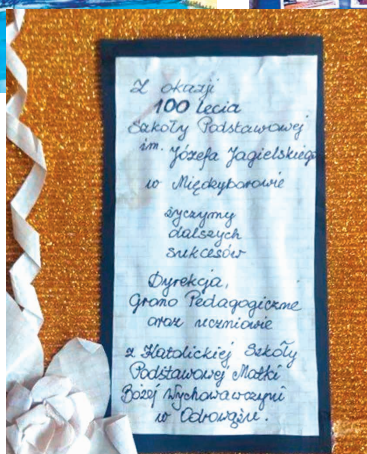 Z okazji
100 lecia
Szkoły Podstawowej
im. Józefa Jagielskiego
w Międzyborowie
życzymy
dalszych
sukcesów
Dyrekcja,
Grono Pedagogiczne
oraz uczniowie
z Katolickiej Szkoły
Podstawowej Matki
Bożej Wychowawczyni
w Odrowążu.